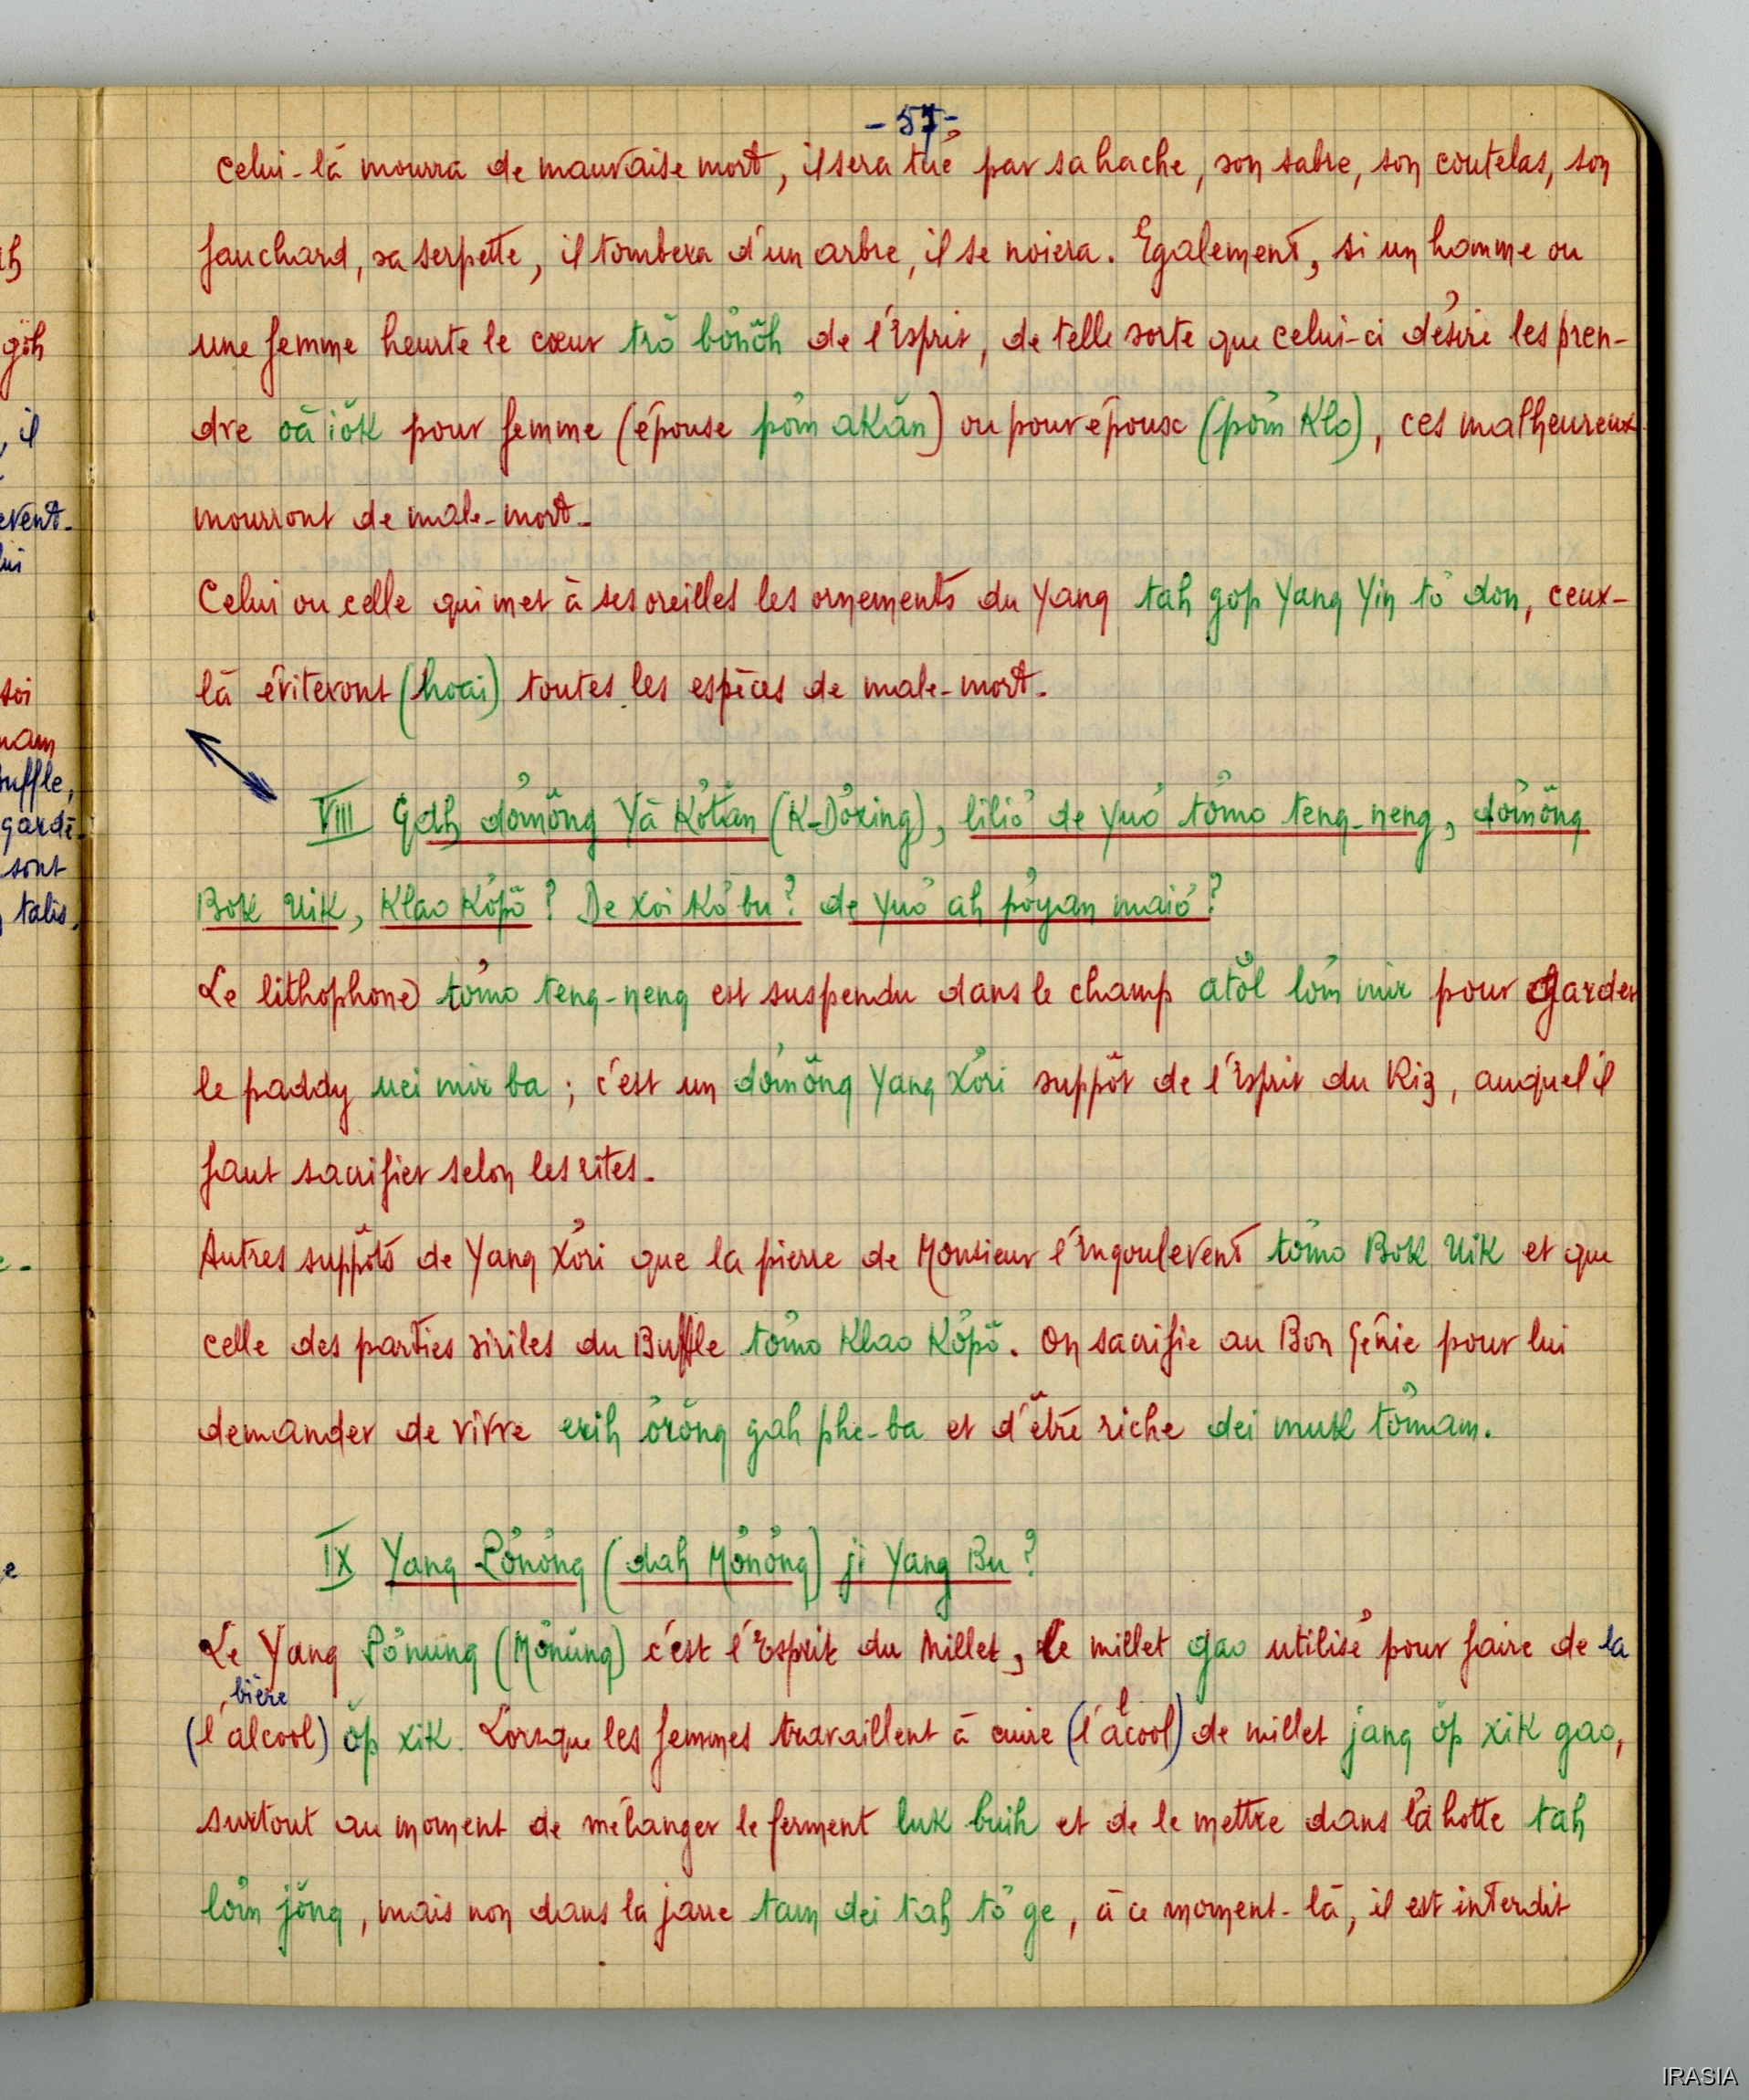 - 57 -
celui-là mourra de mauvaise mort, il sera tué par sa hache, son sabre, son coutelas, son
fauchard, sa serpette, il tombera d'un arbre, il se noiera. Egalement, si un homme ou
une femme heurte le cœur trŏ bơnŏh de l'Esprit, de telle sorte que celui-ci désire les pren-
dre oă iŏk pour femme (épouse pơm akăn) ou pour époux (pơm klo), ces malheureux
mourront de male-mort.
Celui ou celle qui met à ses oreilles les ornements du Yang tah gop Yang Yin tơ don, ceux-
là éviteront (hoai) toutes les espèces de male-mort.
VIII Gah dơmŏng Yă Kơtăn (K-Dơxing), liliơ de yuơ tơmo teng-neng, dơmŏng
Bok Uik, Klao Kơpŏ ? De xoi kơ bu ? de yuơ ah pơyan maiơ ?
Le lithophone tơmo teng-neng est suspendu dans le champ atŏl lơm mir pour garder
le paddy uei mir ba ; c'est un dơmŏng Yang Xơri suppôt de l'Esprit du Riz, auquel il
faut sacrifier selon les rites.
Autres suppôts de Yang Xơri que la pierre de Monsieur l'Engoulevent tơmo Bok Uik et que
celle des parties viriles du Buffle tơmo Klao Kơpŏ. On sacrifie au Bon Génie pour lui
demander de vivre erih ơrŏng gah phe-ba et d'être riche dei muk tơmam.
IX Yang Pơnŏng (dah Mơnŏng) ji Yang Bu ?
Le Yang Pơnung (Mơnŭng) c'est l'Esprit du Millet, le millet gao utilisé pour faire de la
bière
(l'alcool) ŏp xik. Lorsque les femmes travaillent à cuire (l'alcool) de millet jang ŏp xik gao,
surtout au moment de mélanger le ferment luk buih et de le mettre dans la hotte tah
lơm jŏng, mais non dans la jarre tam dei tah tơ ge, à ce moment-là, il est interdit
gŏh
, il
soi
sont
talis,
IRASIA